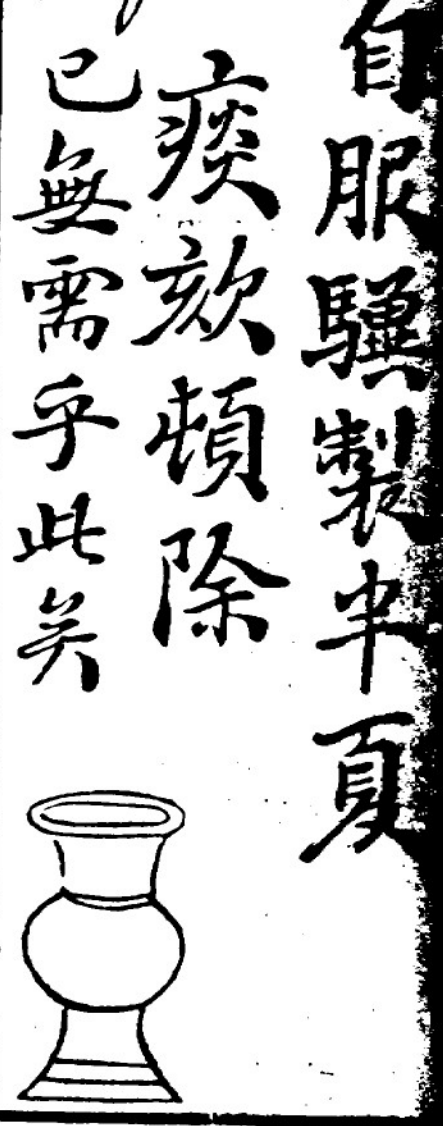 自服驥製半夏
痰欬頓除
已無需乎此矣